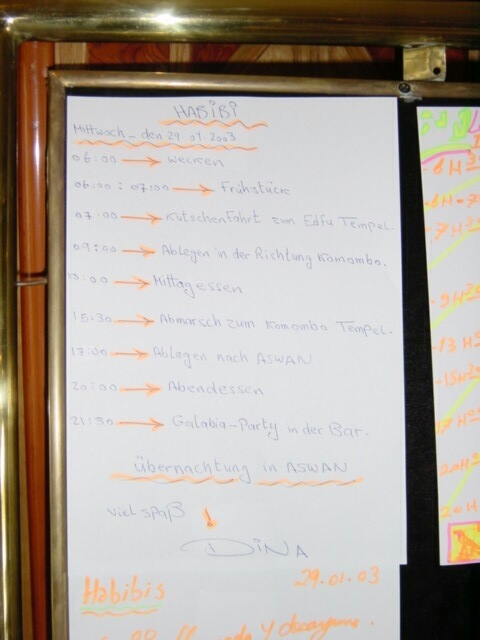 HABIBI
Mittwoch - den 29.01.2003
06:00 → wecken
06:00 : 07:00 → Frühstück
07:00 → Kutschenfahrt zum Edfu Tempel.
09:00 → Ablegen in der Richtung Komombo.
→ Mittagessen
15:30 → Abmarsch zum Komombo Tempel.
17:00 → Ablegen nach ASWAN
20:00 → Abendessen
21:30 → Galabia-Party in der Bar.
Übernachtung in ASWAN
viel spaß !
DINA
29.01.03
Habibis